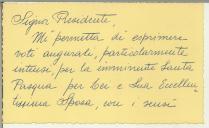 Signor Presidente,
Mi permetta di esprimere
voti augurali, particolarmente
intensi, per la imminente Santa
Pasqua per Lei e Sua Eccellen
tissima Sposa, con i sensi